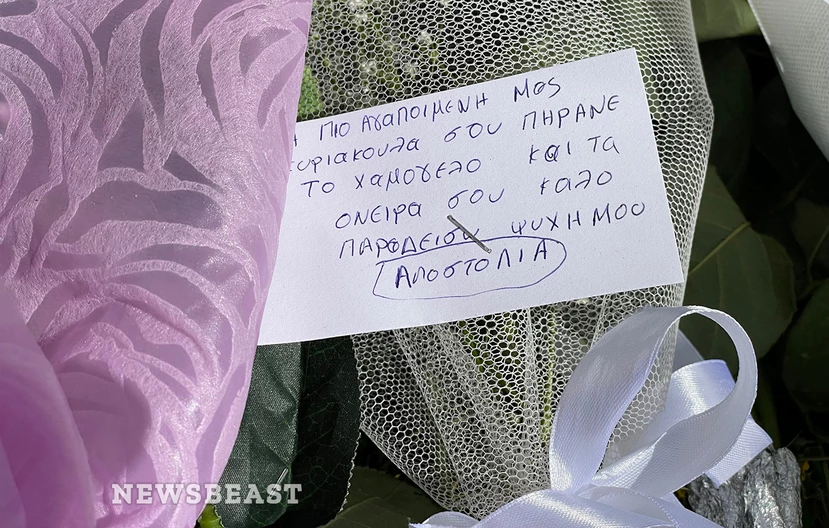 Η ΠΙΟ ΑγΑΠΟΙΜΕΝΗ Μας
κυριακουλα σου ΠΗΡΑΝΕ
ΤΟ χΑΜΟγελο και τα
ΟΝΕΙΡΑ σου καλο
ΠΑΡΑΔΕΙσω ψυχΗ ΜΟυ
ΑΠΟΣΤΟΛΙΑ
NEWSBEAST